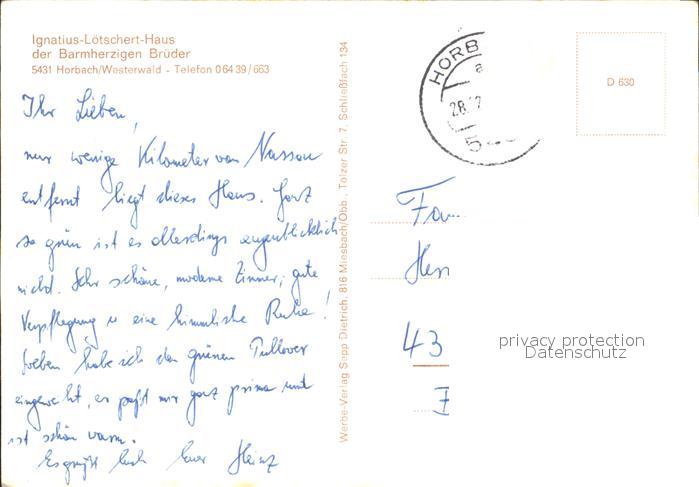 Ignatius-Lötschert-Haus
der Barmherzigen Brüder
5431 Horbach/Westerwald - Telefon 0 64 39 / 663
Ihr Lieben,
nur wenige Kilometer von Nassau
entfernt liegt dieses Haus. Ganz
so grün ist es allerdings augenblicklich
nicht. Sehr schöne, moderne Zimmer, gute
Verpflegung u eine himmlische Ruhe!
Soeben habe ich den grünen Pullover
eingeweiht, er paßt mir ganz prima und
ist schön warm.
Es grüßt Euch Euer Heinz
Werbe-Verlag Sepp Dietrich, 816 Miesbach/Obb., Tölzer Str. 7, Schließfach 134
HORB
28.
5
D 630
Fa
Herr
43
privacy protection
Datenschutz